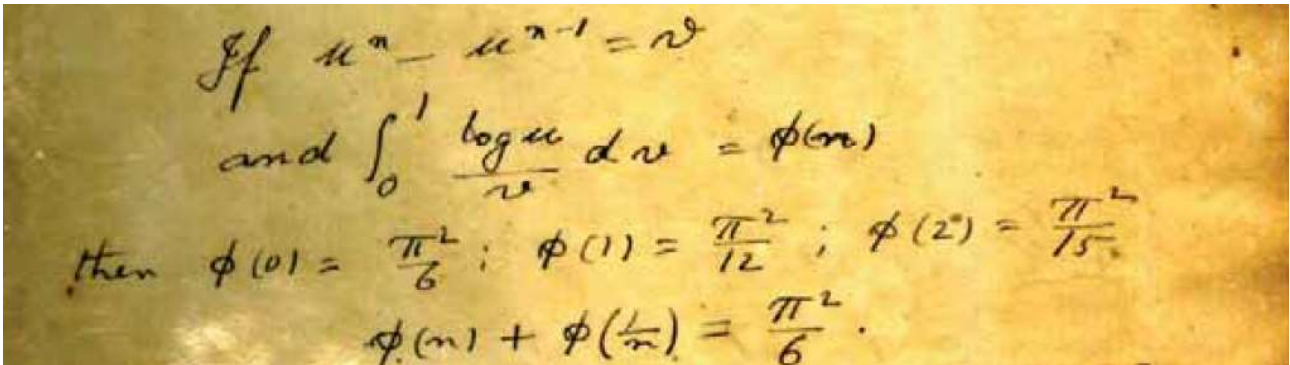 If uⁿ - uⁿ⁻¹ = v
and ∫₀¹ log u / v dv = φ(n)
then φ(0) = π²/6 ; φ(1) = π²/12 ; φ(2) = π²/15
φ(n) + φ(1/n) = π²/6 .